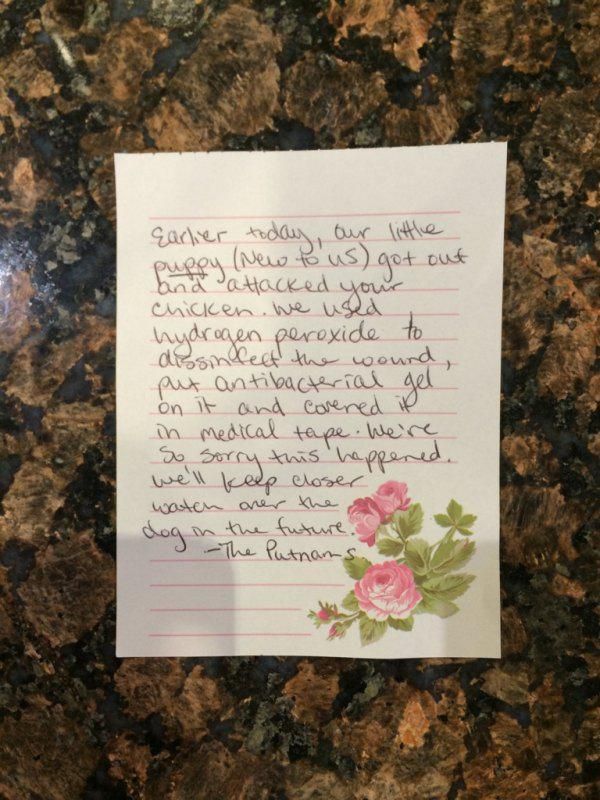 Earlier today, our little
puppy (New to us) got out
and attacked your
chicken. We used
hydrogen peroxide to
dissinfect the wound,
put antibacterial gel
on it and covered it
in medical tape. We're
so sorry this happened.
We'll keep closer
watch over the
dog in the future.
-The Putnams.